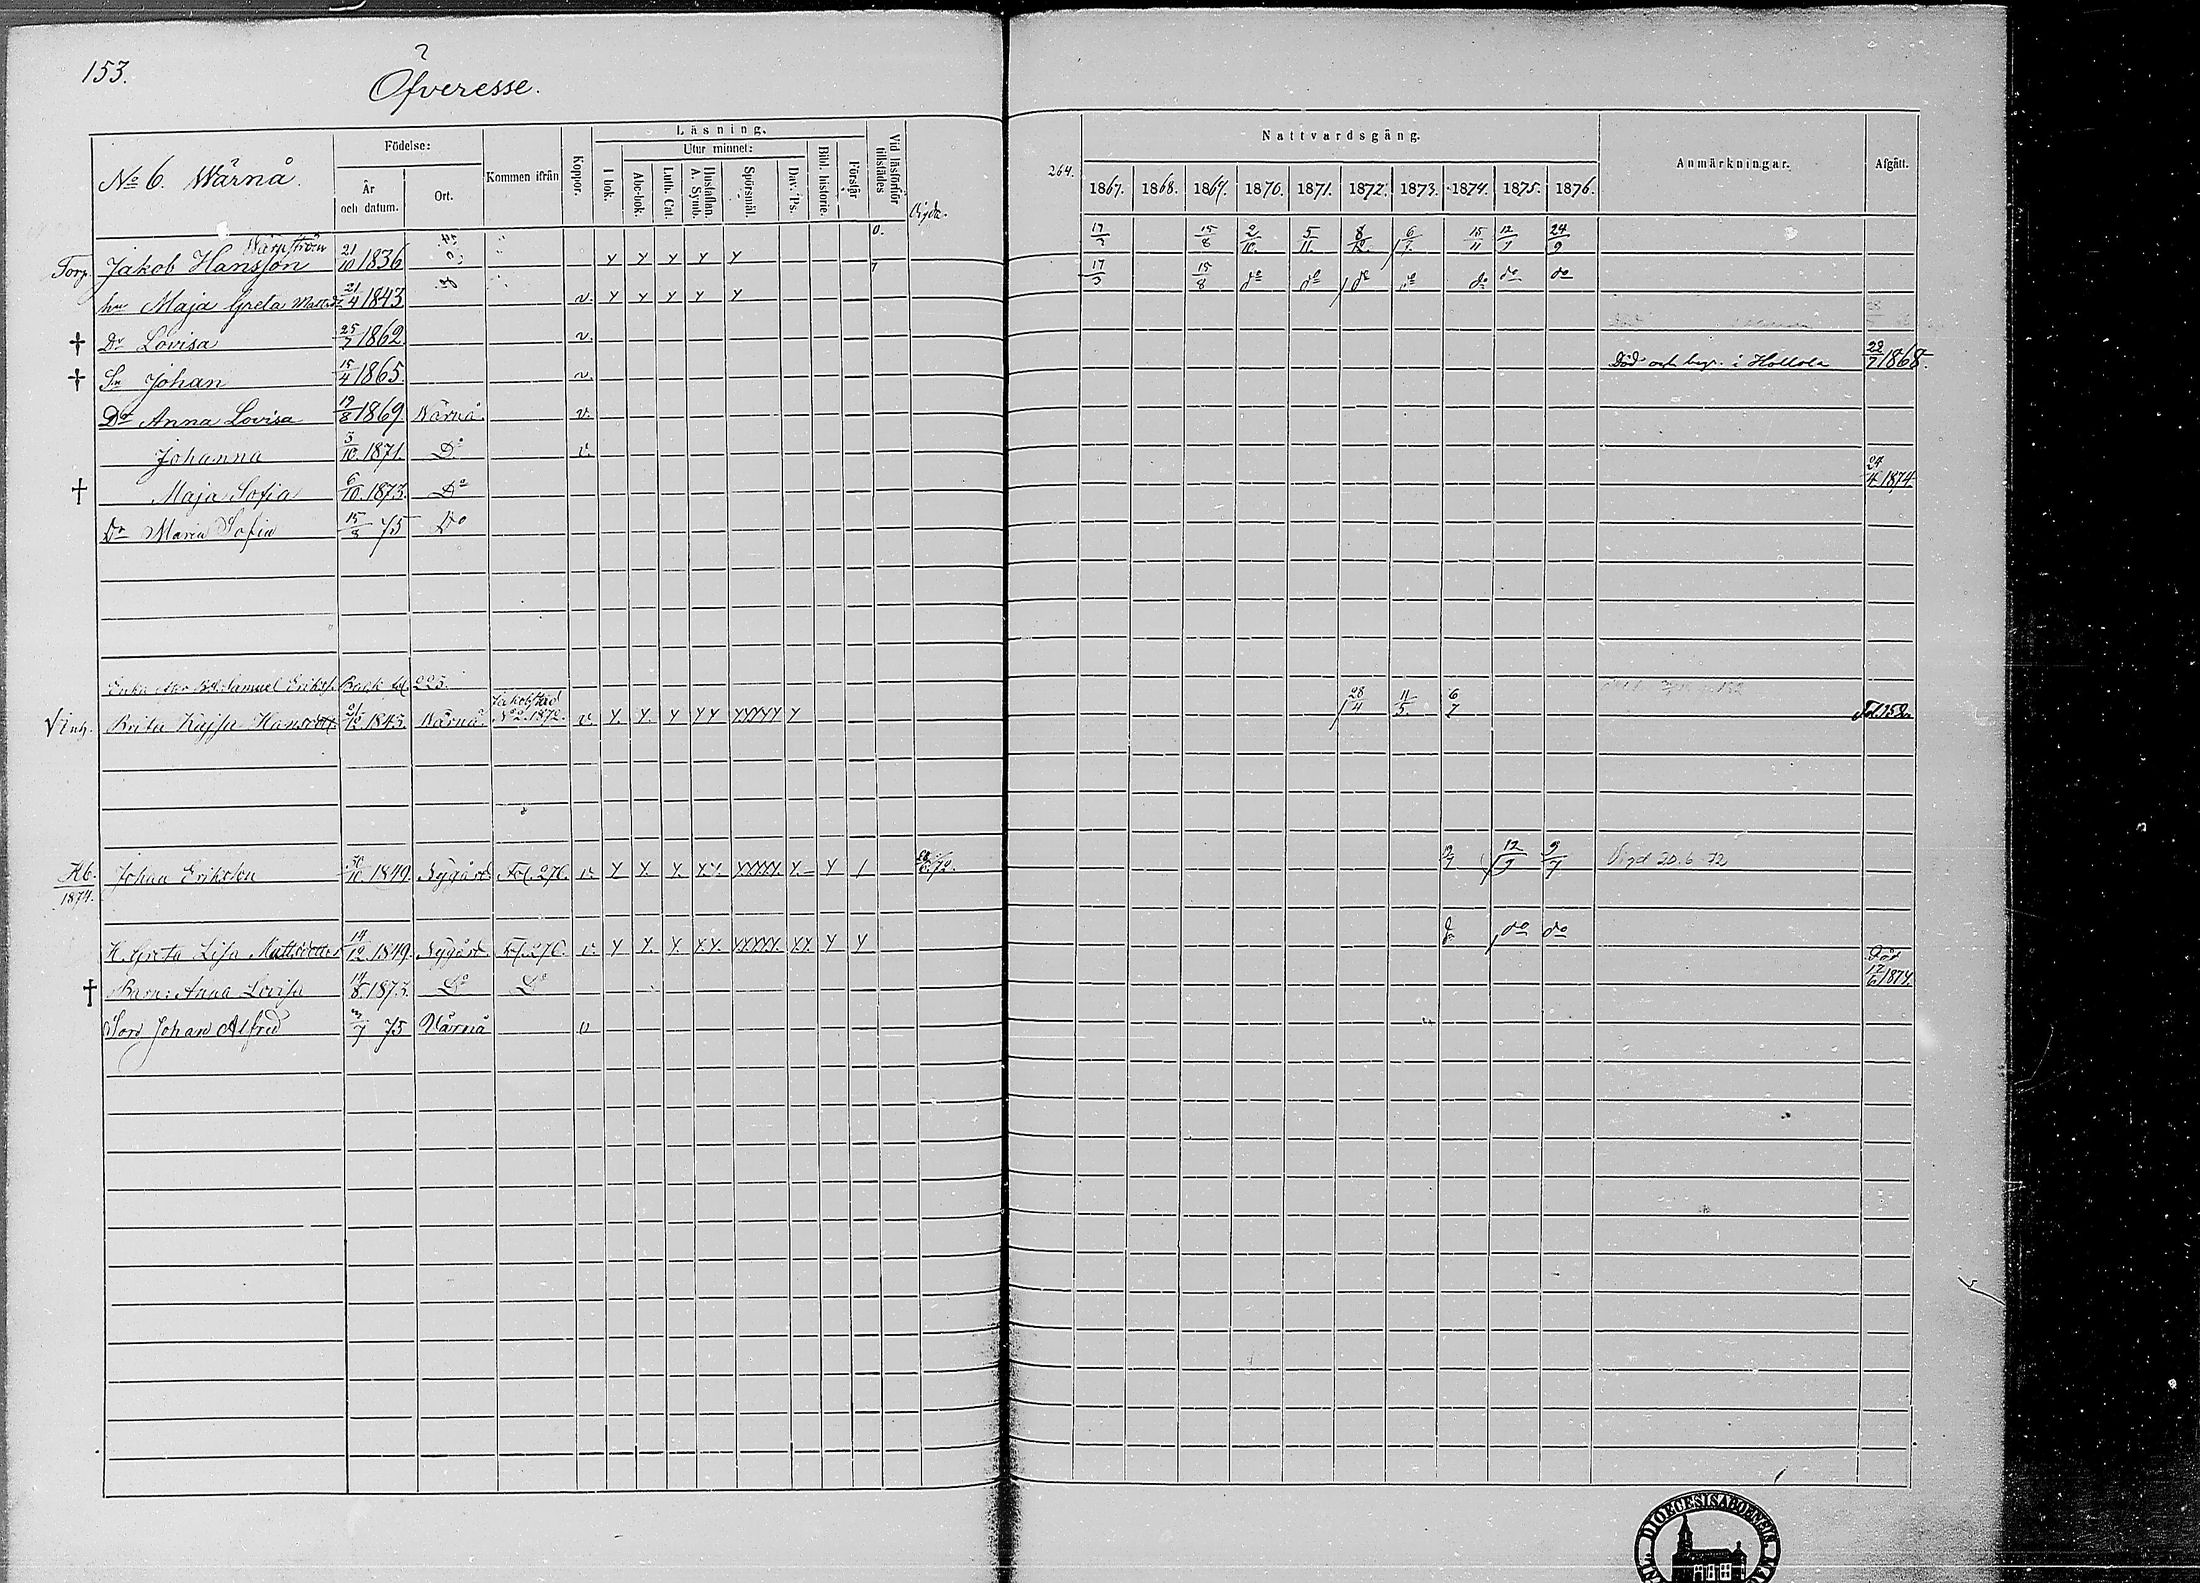 153.
Öfveresse.
No 6. Wärnå.
Födelse:
År och datum.
Ort.
Kommen ifrån
Koppor.
Läsning.
I bok.
Utur minnet:
Abc-bok.
Luth. Cat.
Hustaflan. A. Symb.
Spörsmål.
Dav. Ps.
Bibl. historie.
Förstår
Vid läsförhör tillstädes
264.
Nattvardsgång.
1867. 1868. 1869. 1870. 1871. 1872. 1873. 1874. 1875. 1876.
Anmärkningar.
Afgått.
Torp. Jakob Hansson 21/10 1836 y y y y y 17/3 15/8 2/10. 5/11. 8/12. 15/11 24/9
hu Maja Greta Mattsdr 21/4 1843 v. y y y y y 17/3 15/8 do do do do do do do
† Dr Lovisa 25/7 1862 v.
† Sn Johan 15/4 1865 v. Död och begr. i Hollola 22/7 1868.
Dr Anna Lovisa 19/8 1869 Wärnå v.
Johanna 3/10. 1871. Do v.
† Maja Sofia 6/10. 1873. Do 24/4 1874
Dr Maria Sofia 15/3 75 Do
Enka efter Samuel Eriks. Back fol. 225.
Inh. Brita Kajsa Hansdotter 21/12 1843. Wärnå. Jakobstad No 2. 1872. v. y. y. y y y yyyyy y 28/4 11/5. 6/7 Fol. 152.
Hb. 1874. Johan Eriksson 30/10 1849. Nygård Fol. 276. v. y y. y. y y. yyyyy. y. y / 12/7 9/7 Vigd 20.6.72
H. Greta Lisa Mattsdotter 14/12. 1849. Nygård. Fol. 276. v. y y. y. y y. yyyyy. y y. y y do do
† Barn: Anna Lovisa 14/8 1873. Do Do Död 17/6 1874.
Son Johan Alfred 3/7 75 Wärnå v
DIOECESIS ABOENSIS